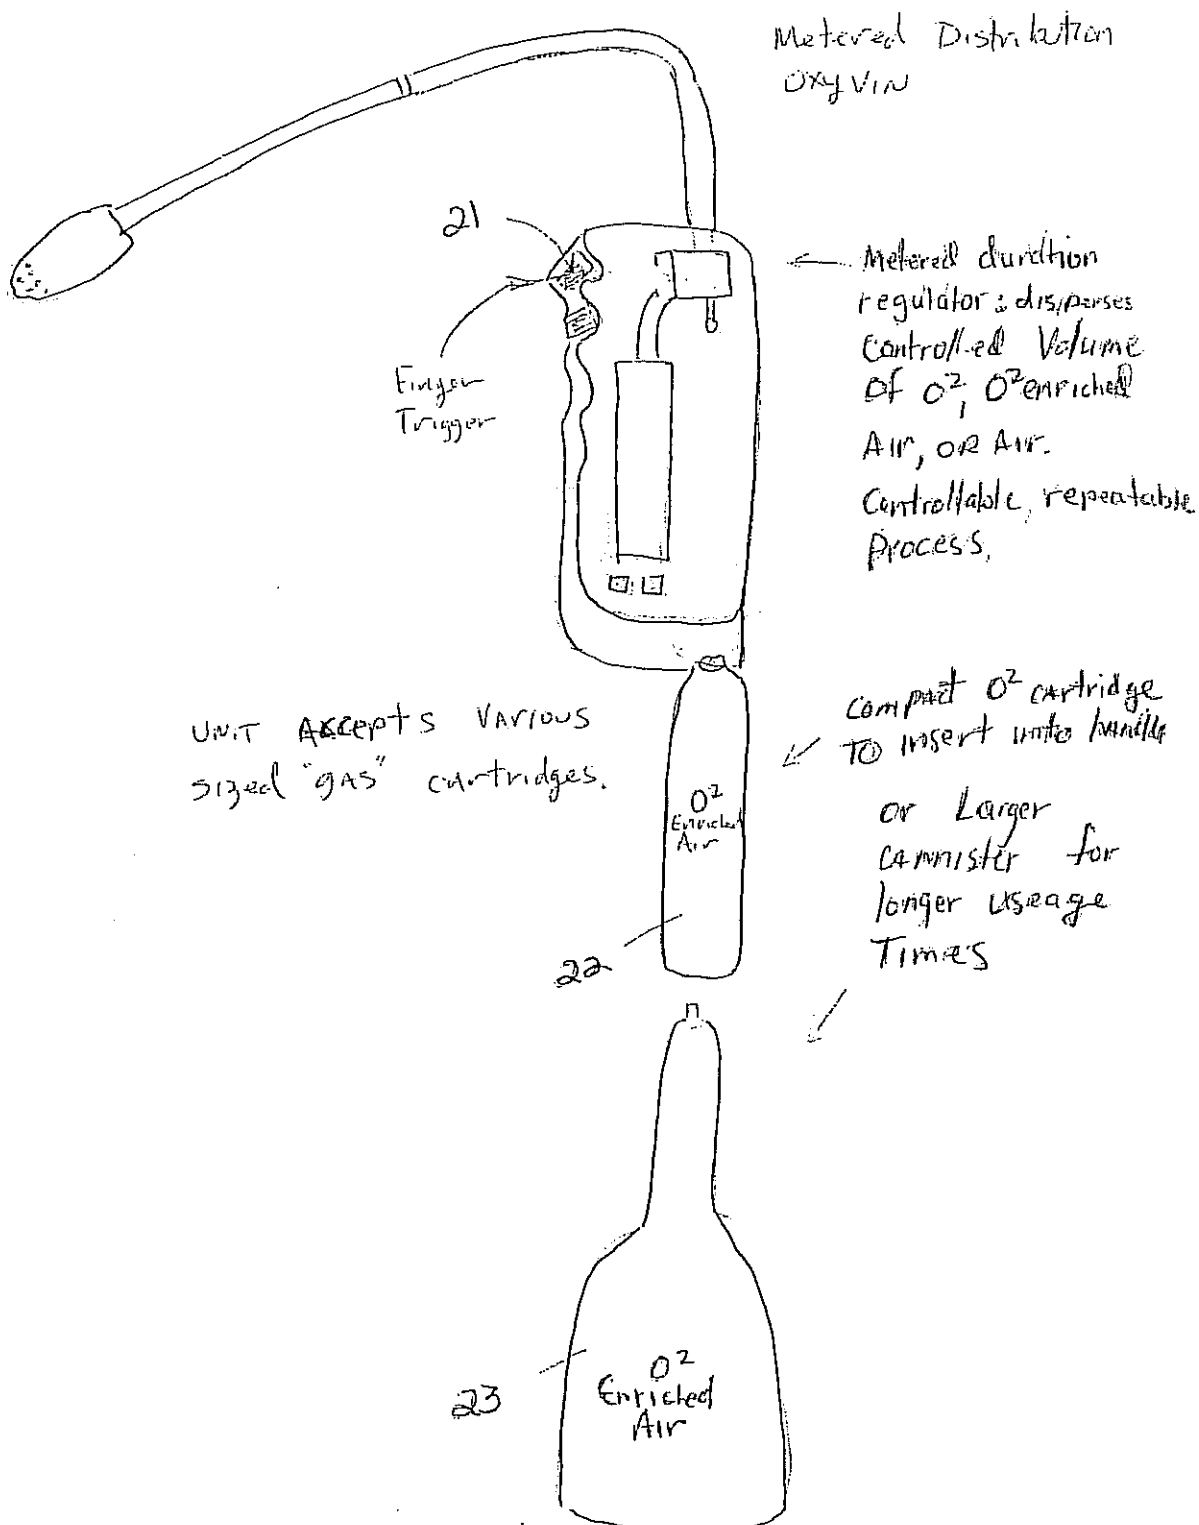 Metered Distribution
OxyVIN
21
Finger
Trigger
Metered durdtion
regulator: disperses
Controlled Volume
Of O², O² enriched
Air, OR Air.
Controllable, repeatable
Process.
UNIT Accepts Various
sized "gAS" cartridges.
compact O² cartridge
TO insert into handle
or Larger
cannister for
longer useage
Times
O²
Enriched
Air
22
O²
Enriched
Air
23